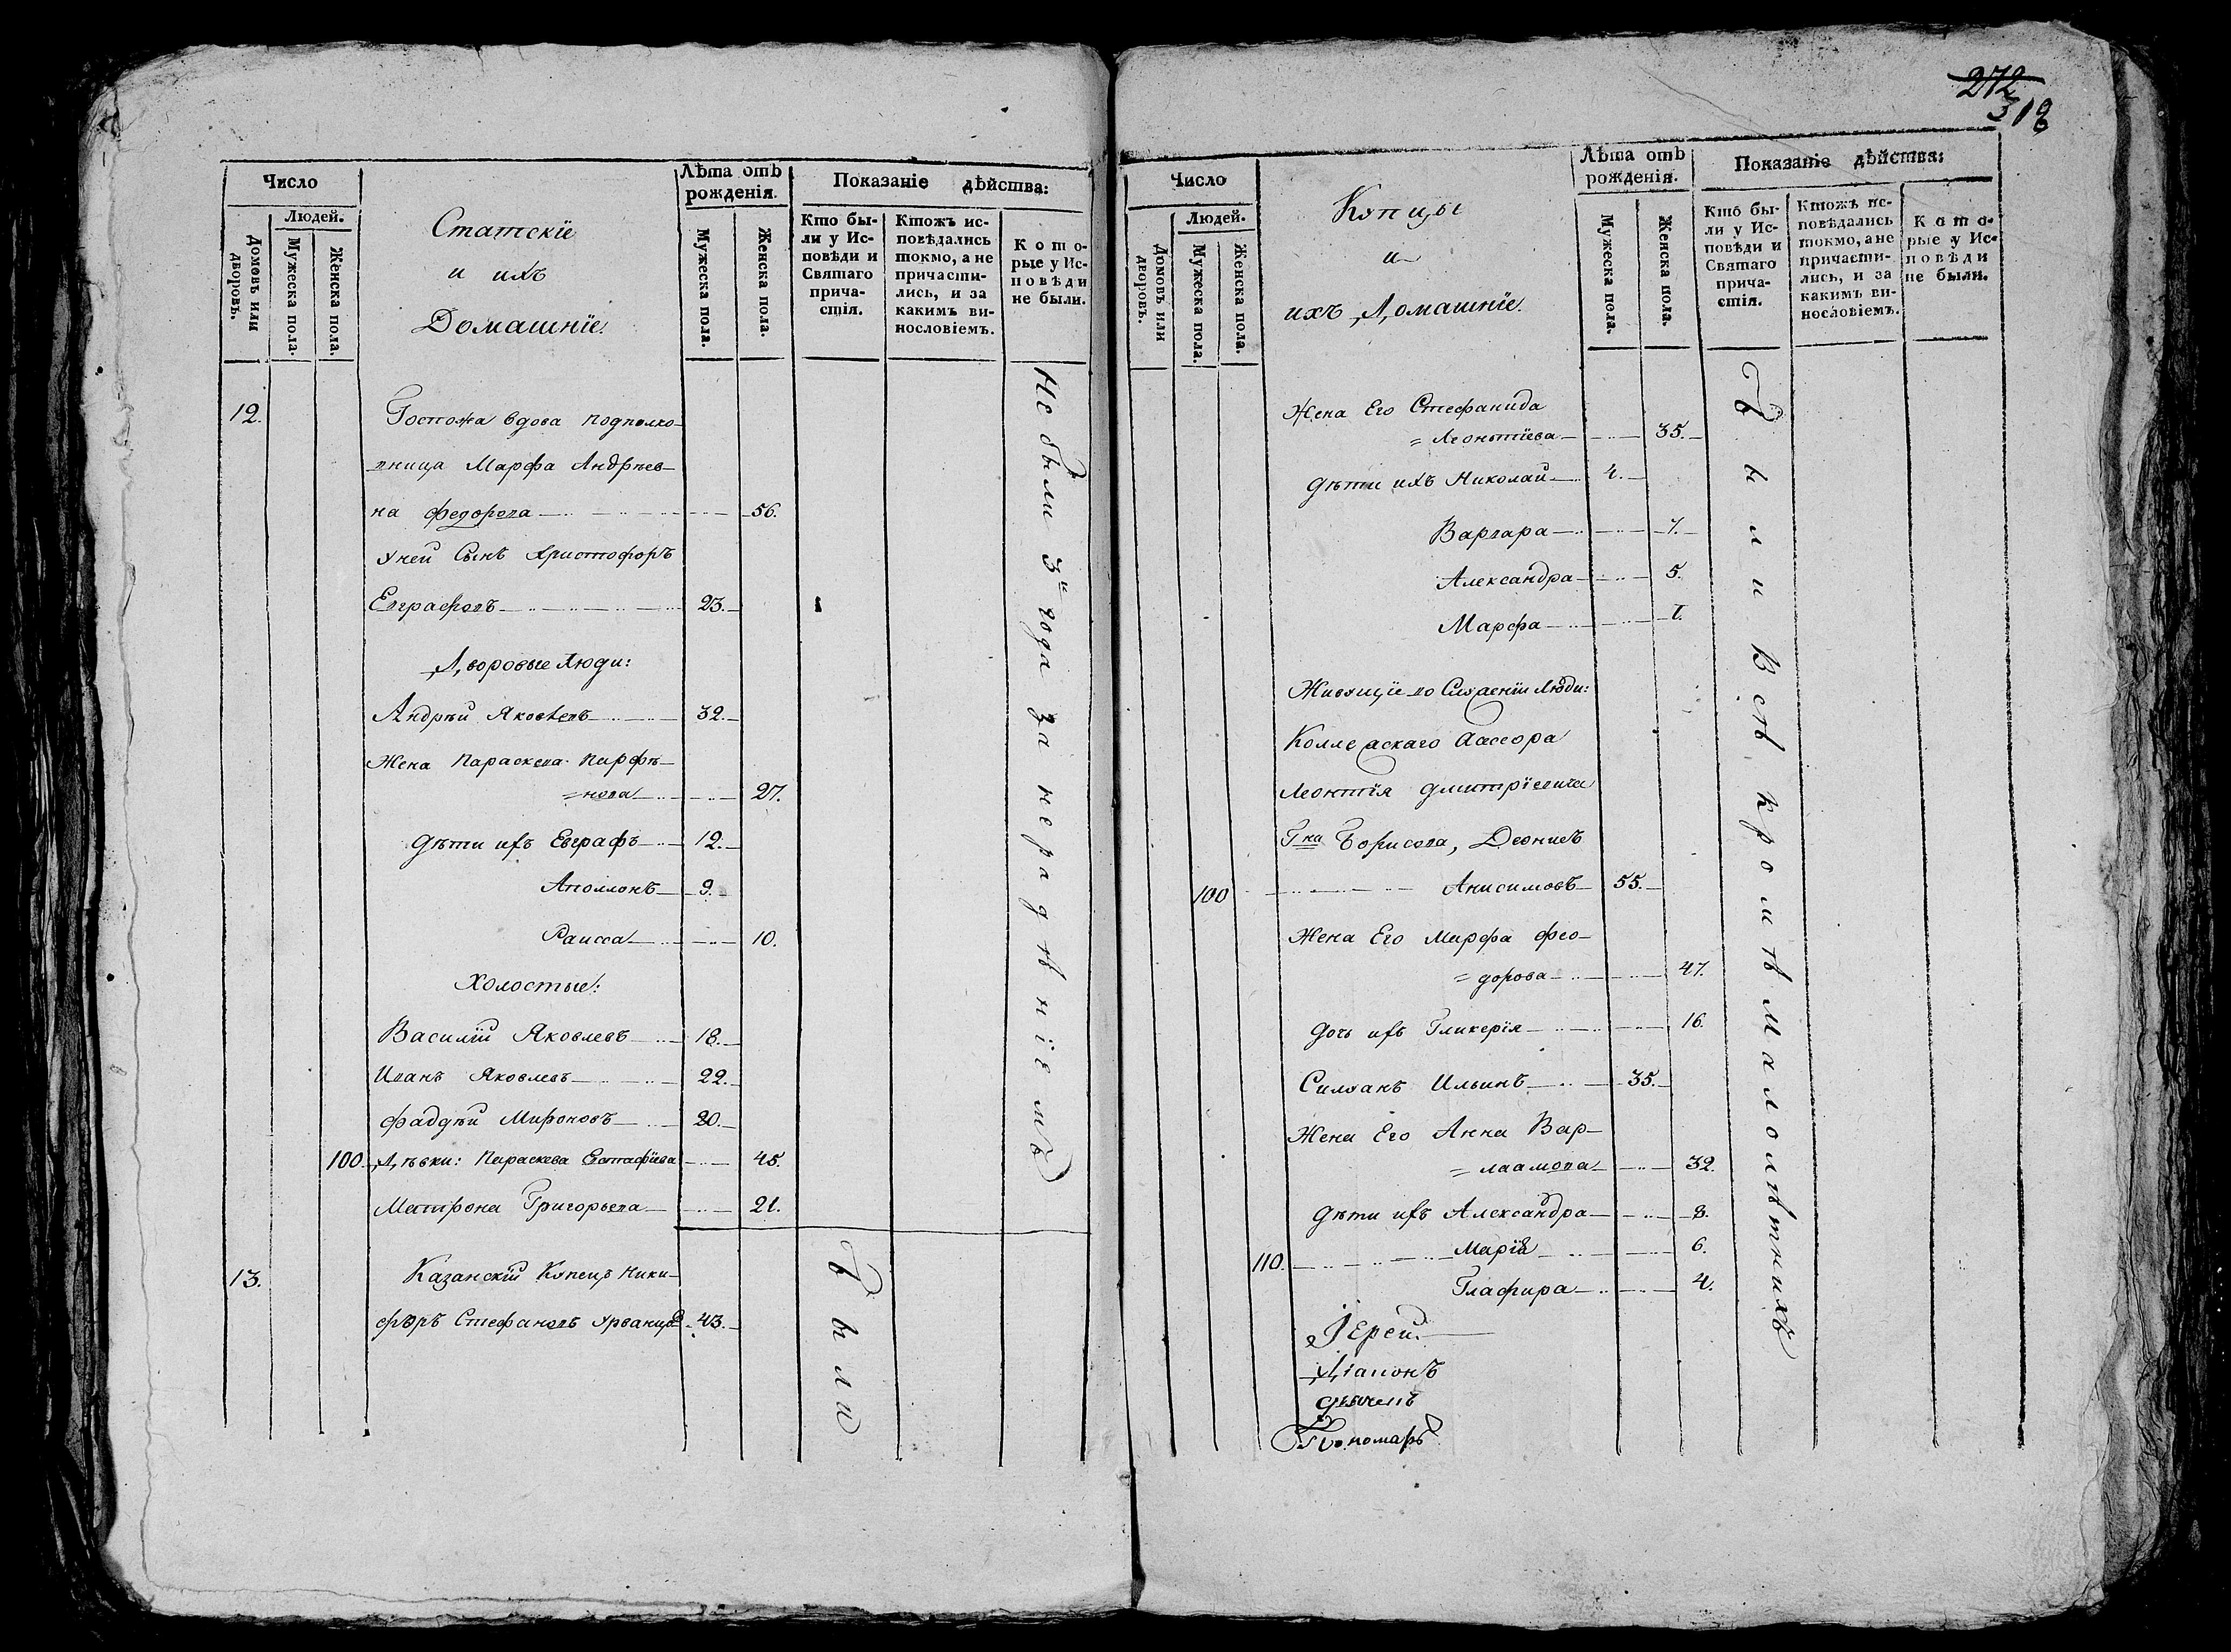 272
318
Число
Людей.
Домовъ или дворовъ.
Мужеска пола.
Женска пола.
Статскіе
и ихъ
Домашніе
Лѣта отъ рожденія.
Мужеска пола.
Женска пола.
Показаніе дѣйства:
Кто бы-
ли у Ис-
повѣди и
Святаго
прича-
стія.
Ктожъ ис-
повѣдались
токмо, а не
причасти-
лись, и за
какимъ ви-
нословіемъ.
Кото-
рые у Ис-
повѣди
не были.
12. Госпожа вдова подполко-
вница Марфа Андрѣев-
на Федорова 56.
У ней Сынъ Христофоръ
Евграфовъ 23.
Дворовые люди:
Андрѣй Яковлевъ 32.
Жена Параскева Парфѣ-
=нова 27.
Дѣти ихъ Евграфъ 12.
Аполлонъ 9.
Раисса 10.
Холостые:
Василій Яковлевъ 18.
Иванъ Яковлевъ 22.
Фаддѣй Мироновъ 20.
100. Дѣвки: Параскева Евстафіева 45.
Матрона Григорьева 21.
Не были 3и года за нерадѣніемъ
13. Казанскій Купецъ Ники-
форъ Стефановъ Урванцовъ 43.
Были
Число
Людей.
Домовъ или дворовъ.
Мужеска пола.
Женска пола.
Купцы
и
ихъ Домашніе.
Лѣта отъ рожденія.
Мужеска пола.
Женска пола.
Показаніе дѣйства:
Кто бы-
ли у Ис-
повѣди и
Святаго
прича-
стія.
Ктожъ ис-
повѣдались
токмо, а не
причасти-
лись, и за
какимъ ви-
нословіемъ.
Кото-
рые у Ис-
повѣди
не были.
Жена Его Стефанида
=Леонтіева 35.
Дѣти ихъ Николай 4.
Варвара 7.
Александра 5.
Марфа 1.
Живущіе по Люди:
Коллежскаго Ассесора
Леонтія Дмитріевича
Гна Борисова, Деонисъ
100 Анисимовъ 55.
Жена Его Марфа Фео-
=дорова 47.
Дочь ихъ Гликерія 16.
Силуанъ Ильинъ 35.
Жена Его Анна Вар-
=лаамова 32.
Дѣти ихъ Александра 8.
110. Марія 6.
Глафира 4.
Были Всѣ кромѣ малолѣтнихъ
Іерей
Діаконъ
Дьячекъ
Пономарь